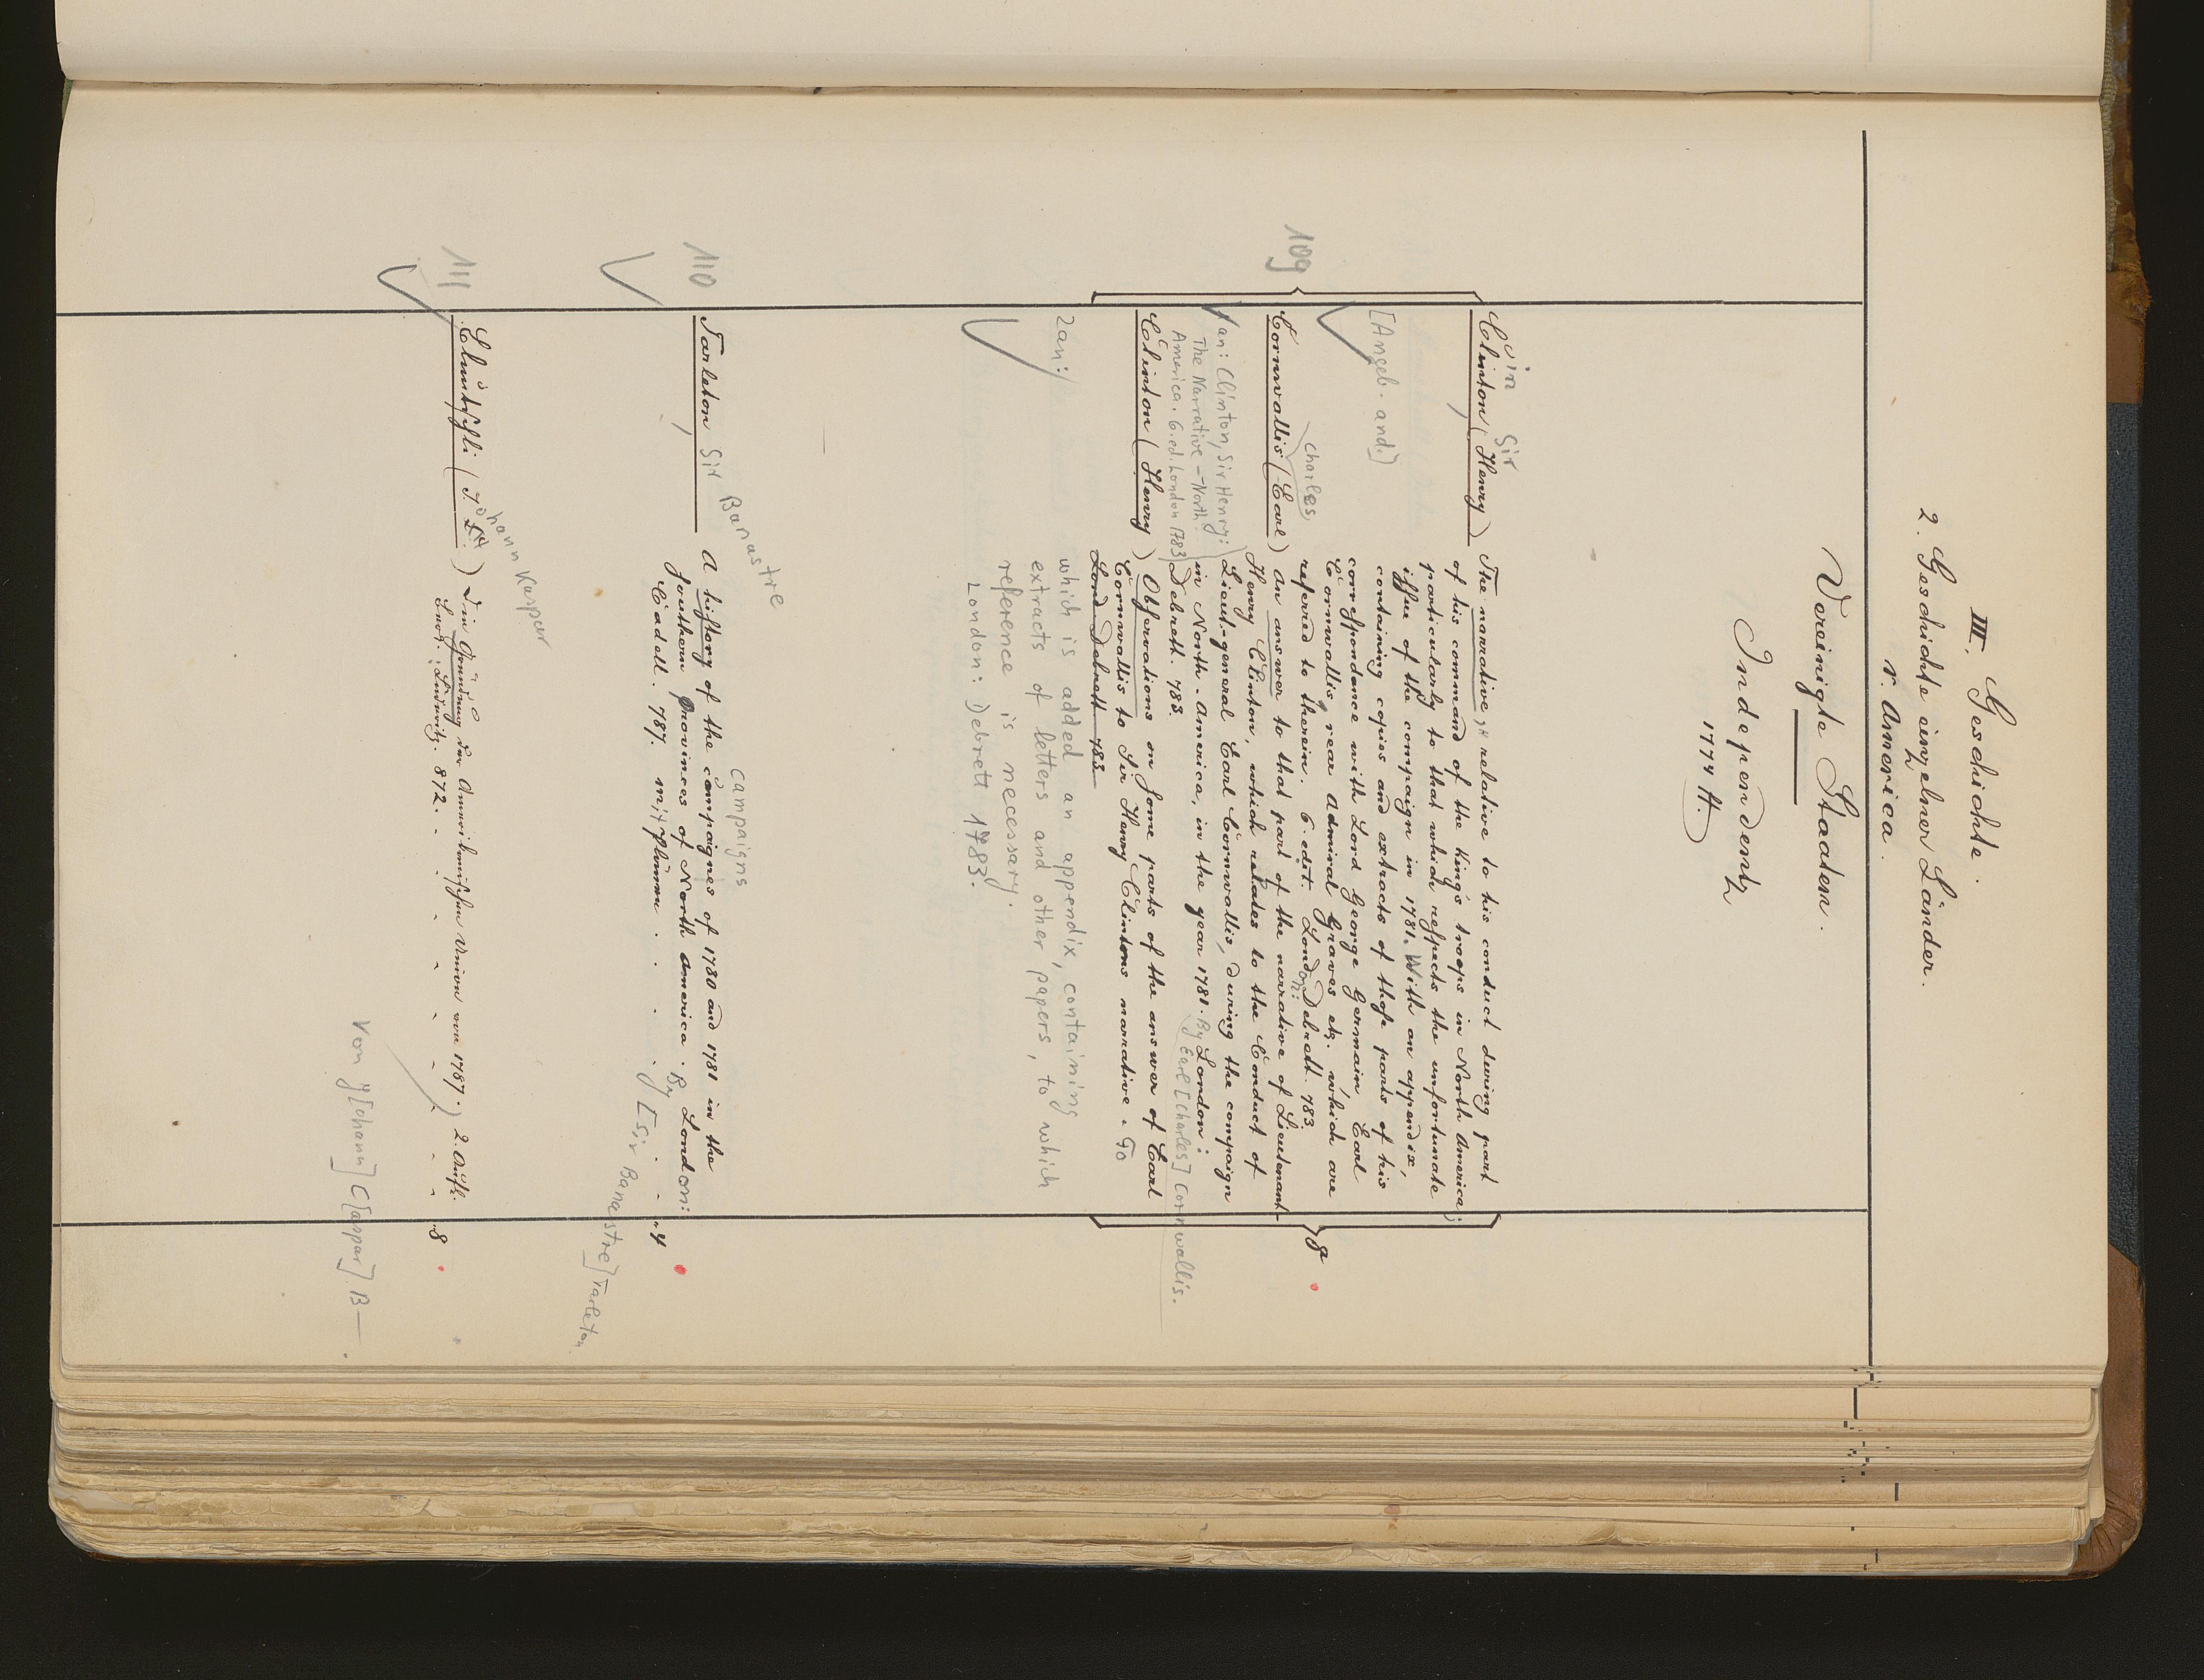 III. Geschichte.
2. Geschichte einzelner Länder.
r. America.
Vereinigte Staaten.
Independentz
1774 ff.
109
in Sir
Clinton, (Henry) The narrative, relative to his conduct during part
of his command of the King's troops in North America;
particularly to that which respects the unfortunate
issue of the compaign in 1781. With an appendix,
[Angeb. and.]
containing copies and extracts of those parts of his
correspondence with Lord George Germain Earl
Cornwallis, rear Admiral Graves etz. which are
referred to therein. 6. edit. London: Debrett. 783
Charles,
Cornwallis (Earl) An answer to that part of the narrative of Lieutenant-
Henry Clinton, which relates to the Conduct of
Lieut-general Earl Cornwallis, during the compaign
in North-America, in the year 1781. By London:
Earl [Charles] Cornwallis.
Debrett. 783.
1an: Clinton, Sir Henry:
The Narrative - North
America. 6. ed. London 1783
Clinton (Henry) Observations on some parts of the answer of Earl
Cornwallis to Sir Henry Clintons narrative. To
Lond Debrett 783
8
2an:
which is added an appendix, containing
extracts of letters and other papers, to which
reference is necessary.
London: Debrett 1783.
110
Banastre
campaigns
Tarleton, Sir A history of the campaignes of 1780 and 1781 in the
southern provinces of North America. By London:
Cadell. 787. mit Plänen . . . . . 4
[Sir Banastre] Tarleton
111
Johann Kaspar
Bluntschli (J. K.) Die Gründung der Amerikanischen Union von 1787. 2. Aufl.
Berl. Lüderitz. 872. . . . . . . . . 8
Von J[ohann] C[aspar] B—.